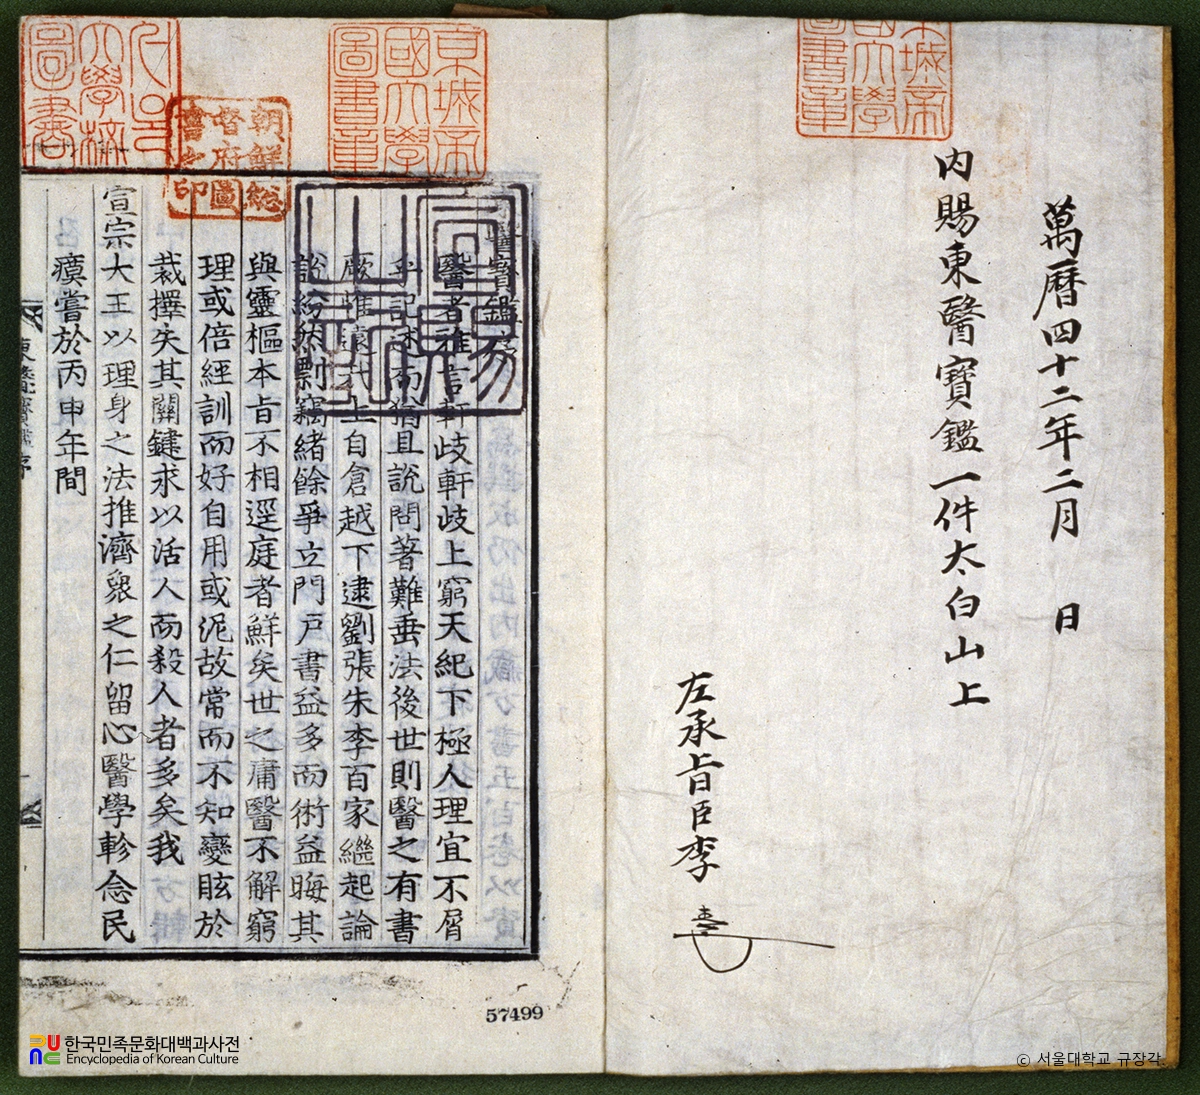 萬曆四十二年二月 日
內賜東醫寶鑑一件太白山上
左承旨臣李
醫寶鑑序
醫者雅言軒歧軒歧上窮天紀下極人理宜不屑
乎記述而猶且說問著難垂法後世則醫之有書
厥惟遠哉上自倉越下逮劉張朱李百家繼起論
說紛然剽竊緖餘爭立門戶書益多而術益晦其
與靈樞本旨不相逕庭者鮮矣世之庸醫不解窮
理或倍經訓而好自用或泥故常而不知變眩於
裁擇失其關鍵求以活人而殺人者多矣我
宣宗大王以理身之法推濟衆之仁留心醫學軫念民
瘼嘗於丙申年間
東醫寶鑑序
京城帝
國大學
圖書章
朝鮮総
督府圖
書之印
宣賜
之記
57499
한국민족문화대백과사전
Encyclopedia of Korean Culture
© 서울대학교 규장각